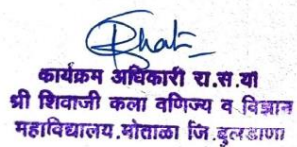 कार्यक्रम अधिकारी रा.स.यो
श्री शिवाजी कला वणिज्य व विज्ञान
महाविद्यालय.मोताळा जि.बुलडाणा